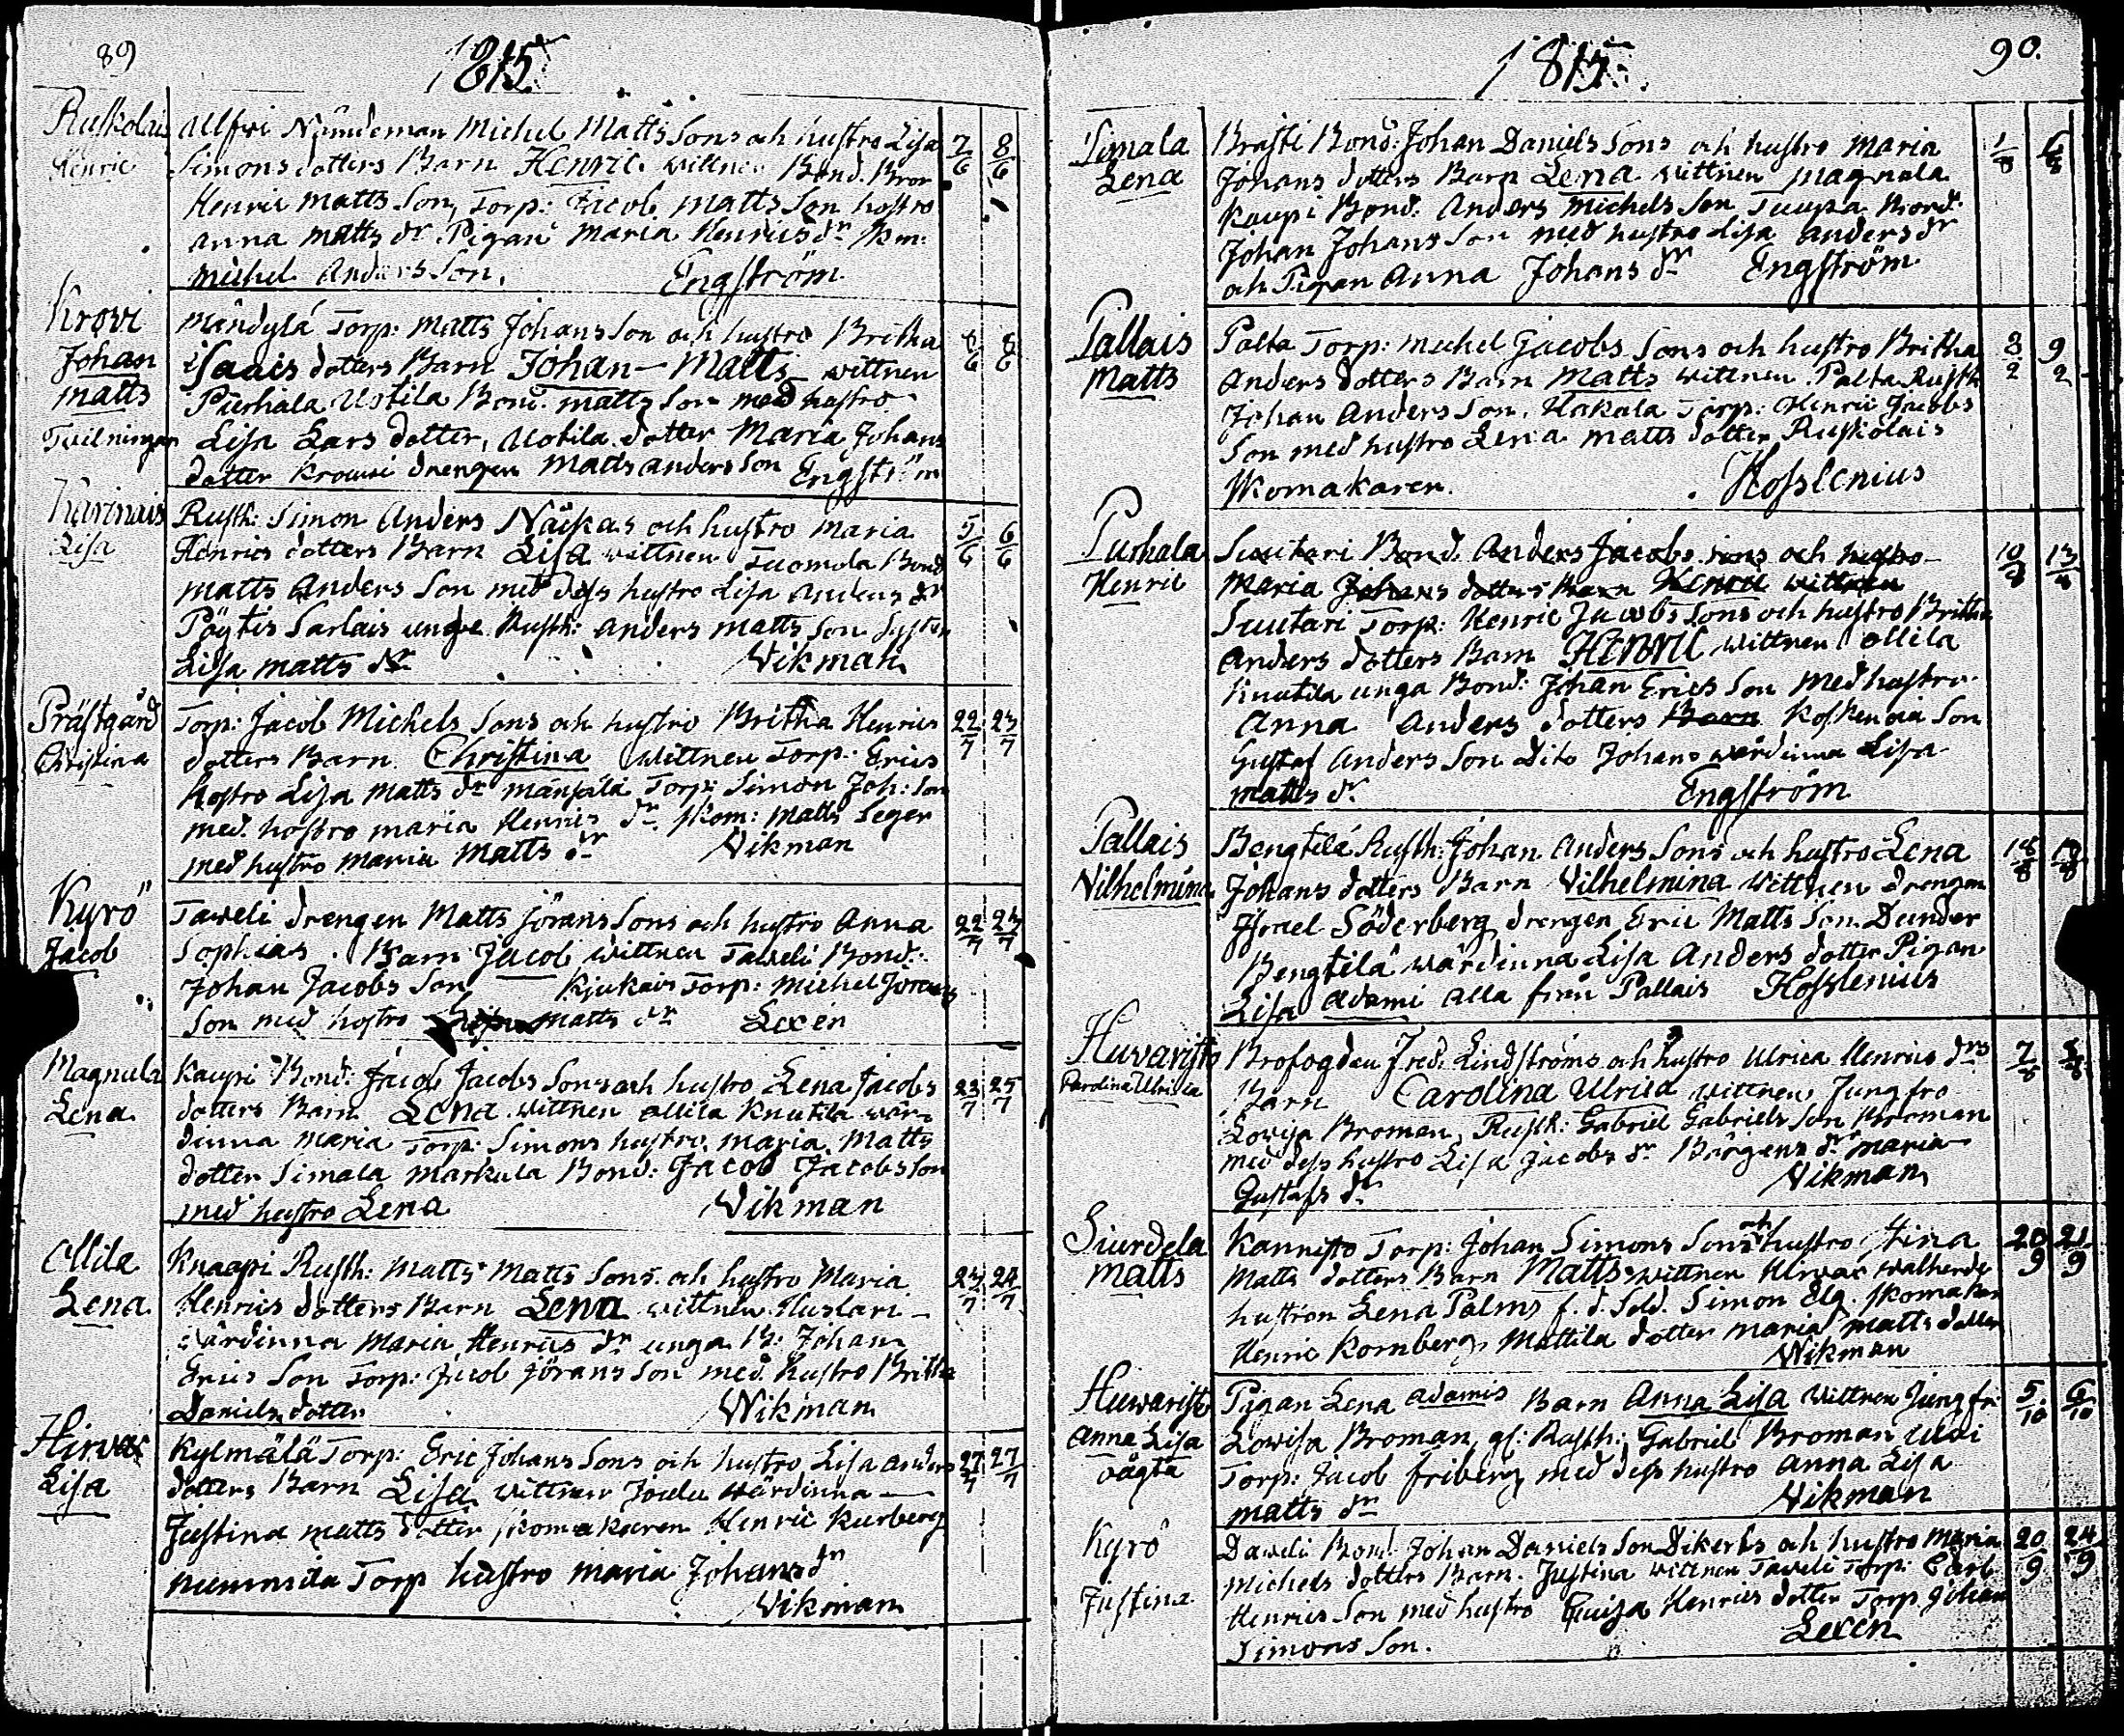 89
1815.
Ruskolais Allfri Nämdeman Michel Matts Sons och hustro Lisa 7/6 8/6
Henric Simons dotters Barn Henric wittnen Bond. Bror
Henric Matts Son, Torp: Jacob Matts Son hustro
Anna Matts dr Pigan Maria Henrics dr Skom:
Michel Anders Son. Engström
Krowi Mändylä Torp: Matts Johans Son och hustro Britha 8/6
Johan Isaacs dotters Barn Johan - Matts wittnen
Matts Uotila Bond. Matts Son med hustro
Twilningar Lisa Lars dotter, Uotila dotter Maria Johans
dotter Krowi drengen Matts Anders Son Engström
Karinais Rusth: Simon Anders Näikas och hustro Maria 5/6 6/6
Lisa Henrics dotters Barn Lisa wittnen Tuomola Bond
Matts Anders Son med dess hustro Lisa Anders dr
Pöytis Sarlais unge Rusth: Anders Matts Son Syster
Lisa Matts dr Vikman
Prästgård Torp: Jacob Michels Sons och hustro Britha Henrics 22/7 23/7
Christina dotters Barn Christina wittnen Torp: Erics
hustro Lisa Matts dr Mänsälä Torp: Simon Joh: Son
med hustro Maria Henrics dr Skom: Matts Seger
med hustro Maria Matts dr Vikman
Kyrö Taweli drengen Matts Jörans Sons och hustro Anna 22/7 24/7
Jacob Sophias Barn Jacob wittnen Taweli Bond:
Johan Jacobs Son Kjukais Torp: Michel Jörans
Son med hustro Matts dr Lexen
Magnula Kaupi Bond: Jacob Jacobs Sons och hustro Lena Jacobs 23/7 25/7
Lena dotters Barn Lena wittnen Ollila Knutila wär-
dinna Maria Torp: Simons hustro Maria Matts
dotter Simala Markula Bond: Jacob Jacobs Son
med hustro Lena Vikman
Ollila Knaapi Rusth: Matts Matts Sons och hustro Maria 23/7 24/7
Lena Henrics dotters Barn Lena wittnen Huslari
wärdinna Maria Henrics dr unga B: Johan
Erics Son Torp: Jacob Jörans Son med hustro Britha
Daniels dotter Wikman
Hirvas Kylmälä Torp: Eric Johans Sons och hustro Lisa Anders 27/7 27/7
Lisa dotters Barn Lisa wittnen wärdinna
Justina Matts dotter Skomakaren Henric Kurberg
Nummila Torp hustro Maria Johans dr
Vikman
90.
1815.
Simala Bond: Johan Daniels Sons och hustro Maria 1/8 6/8
Lena Johans dotters Barn Lena wittnen Magnula
Kaupi Bond: Anders Michels Son Bond:
Johan Johans Son med hustro Lisa Anders dr
och Pigan Anna Johans dr Engström
Pallais Palta Torp: Michel Jacobs Sons och hustro Britha 8/2 9/2
Matts Anders dotters Barn Matts wittnen Palta Rusth
Johan Anders Son. Hakala Torp: Henric Jacobs
Son med hustro Lena Matts dotter Ruskolais
Skomakaren. Hosslenius
Suutari Bond. Anders Jacobs sons och hustro
Henric Maria Johans dotters Barn Henric wittnen
Suutari Torp: Henric Jacobs Sons och hustro Britha
Anders dotters Barn Henric wittnen Ollila
Knutila unga Bond: Johan Erics Son med hustro
Anna Anders dotters Barn Koskenoja Son
Gustaf Anders Son Dito Johans wärdinna Lisa
Matts dr Engström
Pallais Bengtilä Rusth: Johan Anders Sons och hustro Lena
Vilhelmina Johans dotters Barn Vilhelmina wittnen drengen
Israel Söderberg drengen Eric Matts Son Dunder
Bengtilä wärdinna Lisa Anders dotter Pigan
Lisa Adami alla från Pallais Hosslenius
Huvaristo Brofogden Fred: Lindströms och hustro Ulrica Henrics drs 7/8
Carolina Ulrica Barn Carolina Ulrica wittnen Jungfro
Lowisa Broman, Rusth: Gabriel Gabriels Son Broman
med dess hustro Lisa Jacobs dr Maria
Gustafs dr Vikman
Siurdela Kannisto Torp: Johan Simons Sons och hustro Stina 20/9 21/9
Matts Matts dotters Barn Matts wittnen Hirvas
hustron Lena Palms f. d. Sold. Simon Elg. Skomakar
Henric Kornberg, Mattila dotter Maria Matts dotter
Wikman
Huwaristo Pigan Lena Adamis Barn Anna Lisa wittnen Jungfr: 5/10 6/10
Anna Lisa Lowisa Broman, gl: Rusth: Gabriel Broman
oägta Torp: Jacob Friberg med dess hustro Anna Lisa
Matts dr Vikman
Kyrö Daweli Bond: Johan Daniels Son Dikerts och hustro Maria 20/9 24/9
Justina Michels dotters Barn Justina wittnen Taweli Torp: Carl
Henrics Son med hustro Henrics dotter Torp Johan
Simons Son. Lexen